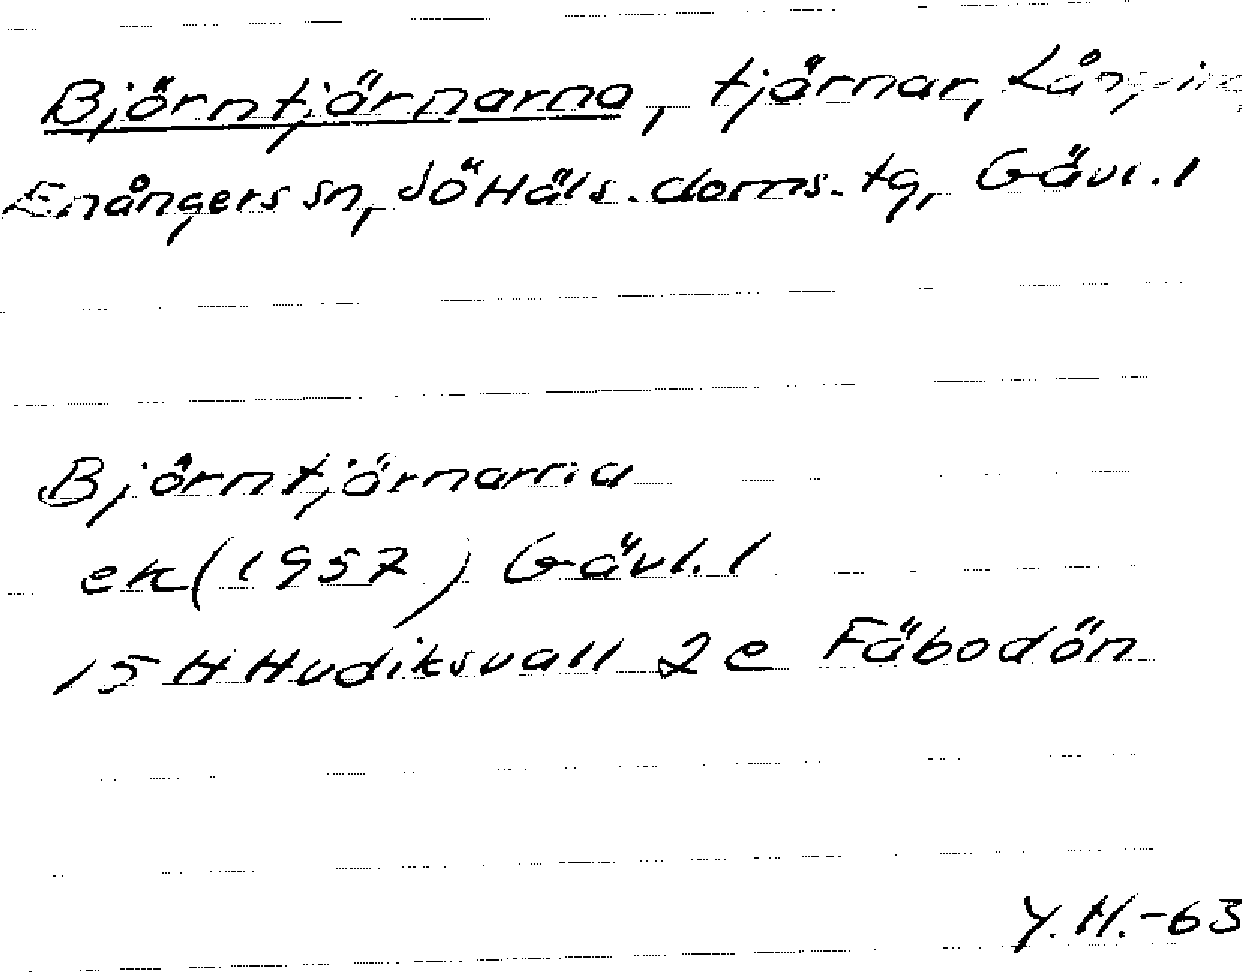 Björntjärnarna, tjärnar,
Enångers sn, SöHäls. doms. tg, Gävl. l
Björntjärnarna
ek (1957) Gävl. l
15 H Hudiksvall 2 e Fäbodön
Y. H. -63